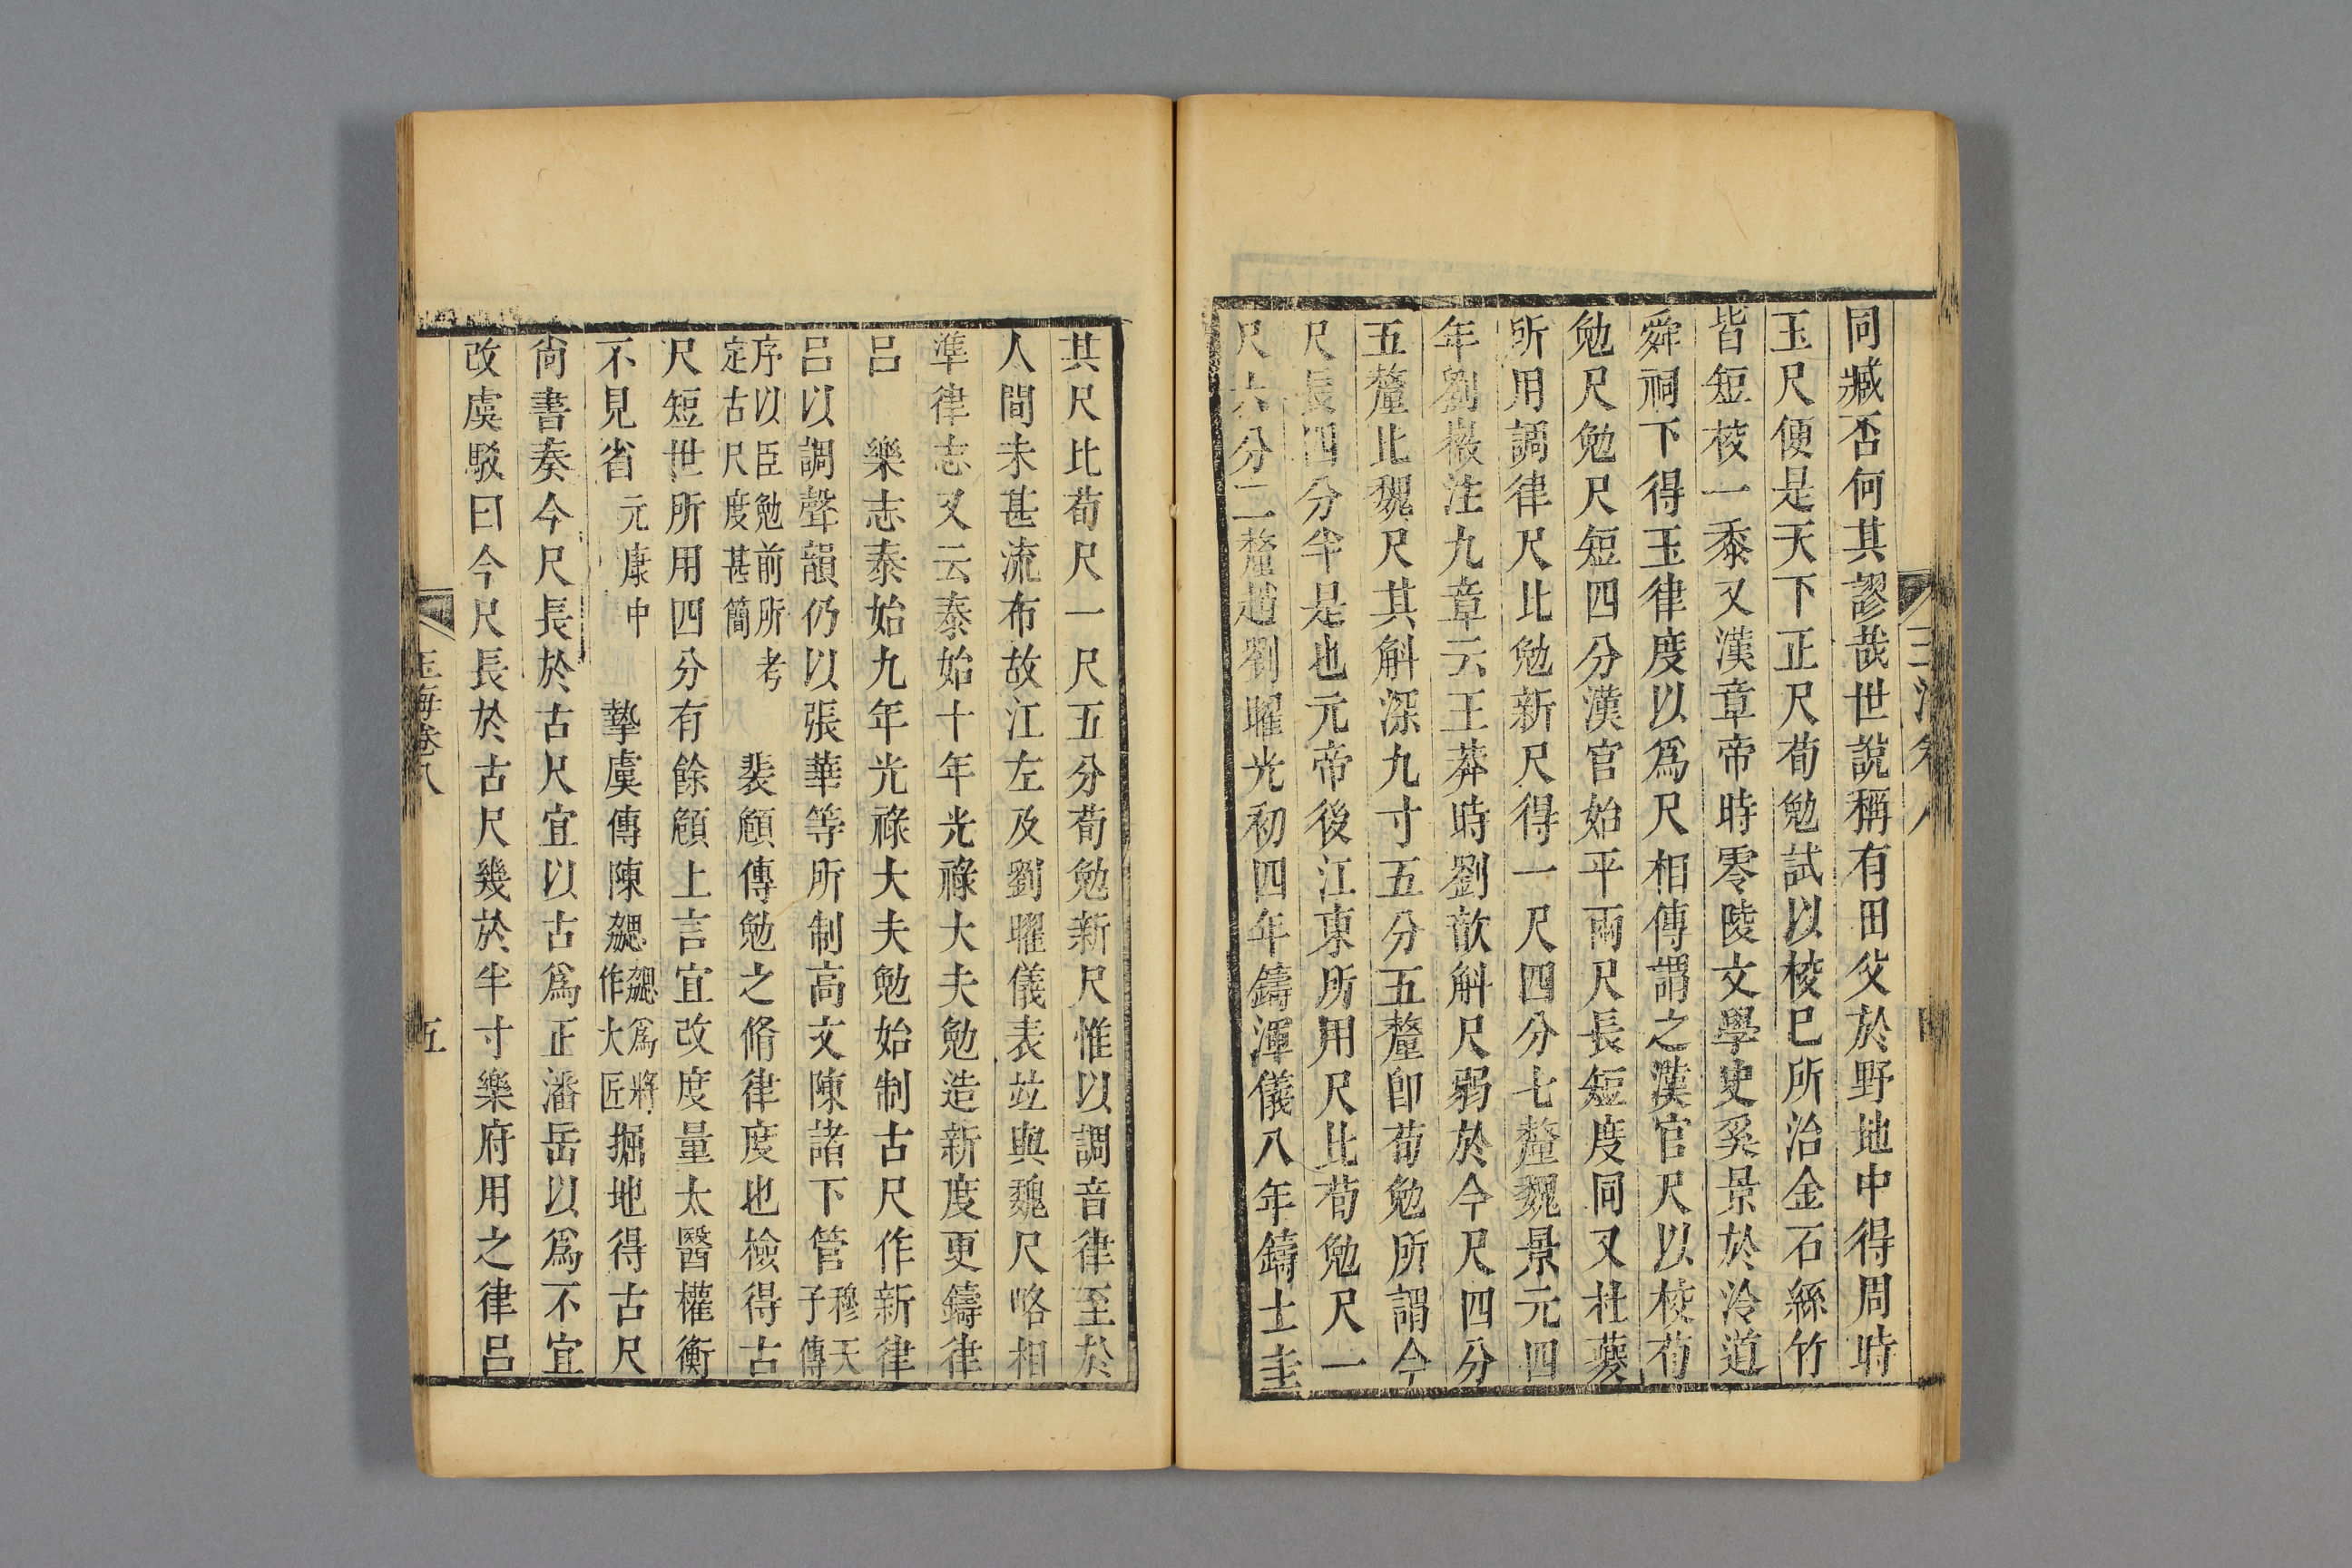 同臧否何其謬哉世說稱有田父於野地中得周時
玉尺便是天下正尺荀勉試以校巳所治金石絲竹
皆短校一黍又漢章帝時零陵文學史奚景於泠道
舜祠下得玉律度以爲尺相傳謂之漢官尺以校荀
勉尺勉尺短四分漢官始平兩尺長短度同又杜夔
所用調律尺比勉新尺得一尺四分七釐魏景元四
年劉徽注九章云王莽時劉歆斛尺弱於今尺四分
五釐比魏尺其斛深九寸五分五釐卽荀勉所謂今
尺長四分半是也元帝後江東所用尺比荀勉尺一
尺六分二釐趙劉曜光初四年鑄渾儀八年鑄土圭
其尺比荀尺一尺五分荀勉新尺惟以調音律至於
人間未甚流布故江左及劉曜儀表竝與魏尺略相
準律志又云泰始十年光祿大夫勉造新度更鑄律
呂 樂志泰始九年光祿大夫勉始制古尺作新律
呂以調聲韻仍以張華等所制高文陳諸下管穆天子傳
序以臣勉前所考定古尺度甚簡 裴頠傳勉之脩律度也檢得古
尺短世所用四分有餘頠上言宜改度量太醫權衡
不見省元康中 摯虞傳陳勰勰爲將作大匠掘地得古尺
尚書奏今尺長於古尺宜以古爲正潘岳以爲不宜
改虞駁曰今尺長於古尺幾於半寸樂府用之律呂
玉海卷八 五